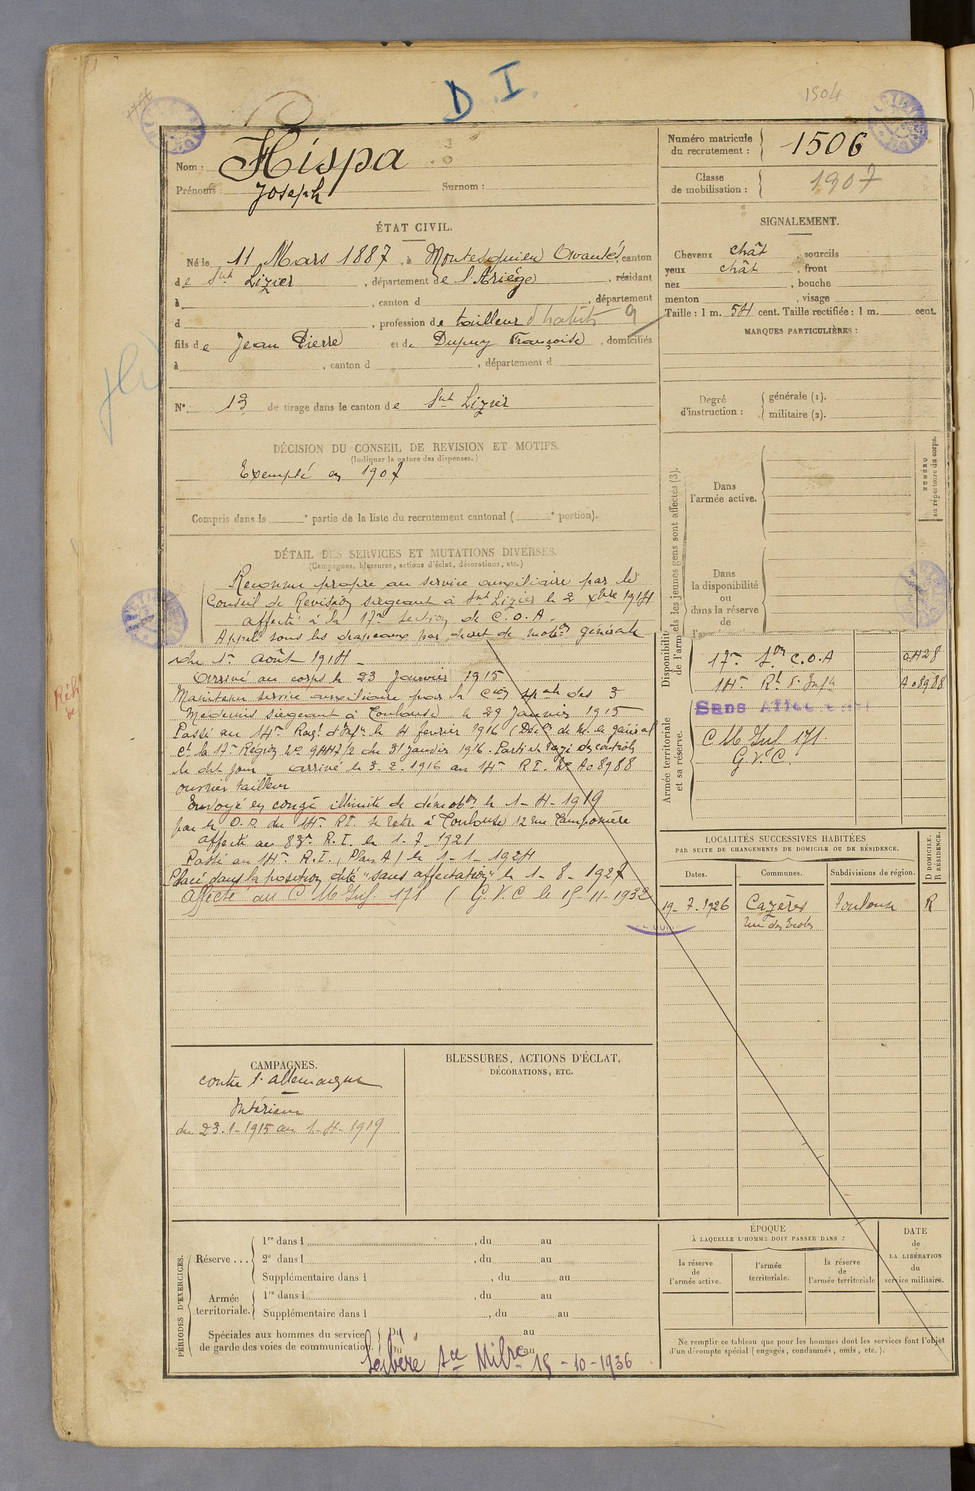 D. I.
1504
Nom : Hispa
Prénoms : Joseph Surnom :
Numéro matricule du recrutement : 1506
Classe de mobilisation : 1907
ÉTAT CIVIL.
Né le 11 Mars 1887, à Montesquieu Avantès, canton
de Snt Lizier, département de l'Ariège, résidant
à , canton d , département
d , profession de tailleur d'habits 9
fils de Jean Pierre et de Dupuy Françoise, domiciliés
à , canton d , département d
N° 13 de tirage dans le canton de Snt Lizier
SIGNALEMENT.
Cheveux chât , sourcils
yeux chât , front
nez , bouche
menton , visage
Taille : 1 m. 54 cent. Taille rectifiée : 1 m. cent.
MARQUES PARTICULIÈRES :
Degré d'instruction : générale (1). militaire (2).
DÉCISION DU CONSEIL DE REVISION ET MOTIFS.
(Indiquer la nature des dispenses.)
Exempté en 1907
Compris dans la e partie de la liste du recrutement cantonal ( e portion).
DÉTAIL DES SERVICES ET MUTATIONS DIVERSES.
(Campagnes, blessures, actions d'éclat, décorations, etc.)
Reconnu propre au service auxiliaire par le
Conseil de Revision siégeant à Snt Lizier le 2 Xbre 1914
affecté à la 17me Section de C.O.A.
Appelé sous les drapeaux par décret de mobon générale
du 1er août 1914 -
Arrivé au corps le 23 Janvier 1915
Maintenu service auxiliaire par la Con des 3
Médecins siégeant à Toulouse le 29 Janvier 1915
Passé au 14me Regt d'Infie le 4 fevrier 1916 (Décon de M. le général
Ct la 17me Région du 31 Janvier 1916. Parti et rayé des contrôles
le dit jour - arrivé le 3-2-1916 au 14me RI. No A08988
ouvrier tailleur
Envoyé en congé illimité de démobon le 1-4-1919
par le D.D. du 14me RI. se retire à Toulouse 12 rue
affecté au 83me R.I. le 1-7-1921
Passé au 14me R.I. (Plan A) le 1-1-1924
Placé dans la position dite "sans affectation" le 1-8-1927
Affecté au C M Inf. 171 ( G.V.C le 15-11-1932
ls les jeunes gens sont affectés (3).
Dans l'armée active.
Dans la disponibilité ou dans la réserve de l'ar
NUMÉRO au répertoire du corps.
Disponibilité de l'arm
17me Son C.O.A
14me Rt d'Infie A08988
Sans Affectation
Armée territoriale et sa réserve.
C M Inf. 171.
G.V.C.
LOCALITÉS SUCCESSIVES HABITÉES
PAR SUITE DE CHANGEMENTS DE DOMICILE OU DE RÉSIDENCE.
Dates. Communes. Subdivisions de région. D DOMICILE. R RÉSIDENCE.
19-7-1926 Cazères Toulouse R
rue des Ecoles
CAMPAGNES.
contre l'allemagne
Intérieur
du 23-1-1915 au 1-4-1919
BLESSURES, ACTIONS D'ÉCLAT,
DÉCORATIONS, ETC.
PÉRIODES D'EXERCICES.
Réserve ... 1re dans l , du au
2e dans l , du au
Supplémentaire dans l , du au
Armée territoriale. 1re dans l , du au
Supplémentaire dans l , du au
Spéciales aux hommes du service de garde des voies de communication. Du au
Du au
Libéré Sce Milre 15-10-1936
ÉPOQUE
À LAQUELLE L'HOMME DOIT PASSER DANS :
la réserve de l'armée active. l'armée territoriale. la réserve de l'armée territoriale
DATE de LA LIBÉRATION du service militaire.
Ne remplir ce tableau que pour les hommes dont les services font l'objet
d'un décompte spécial (engagés, condamnés, omis, etc.).